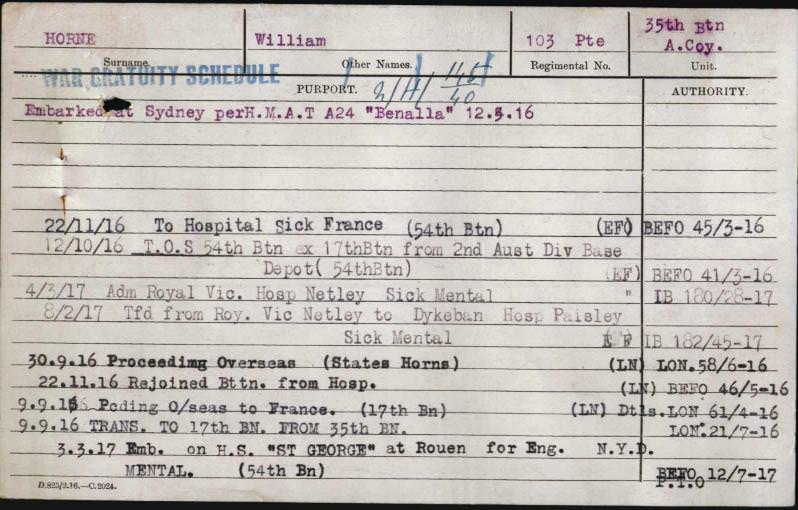 HORNE William 103 Pte 35th Btn
A.Coy.
Surname. Other Names. Regimental No. Unit.
WAR GRATUITY SCHEDULE
PURPORT. AUTHORITY.
Embarked at Sydney perH.M.A.T A24 "Benalla" 12.5.16
22/11/16 To Hospital Sick France (54th Btn) (EF) BEFO 45/3-16
12/10/16 T.O.S 54th Btn ex 17thBtn from 2nd Aust Div Base
Depot( 54thBtn) (EF) BEFO 41/3-16
4/3/17 Adm Royal Vic. Hosp Netley Sick Mental " IB 180/28-17
8/2/17 Tfd from Roy. Vic Netley to Dykeban Hosp Paisley
Sick Mental E F IB 182/45-17
30.9.16 Proceeding Overseas (States Horns) (LN) LON.58/6-16
22.11.16 Rejoined Bttn. from Hosp. (LN) BEFO 46/5-16
9.9.16 Pcding O/seas to France. (17th Bn) (LN) Dtls.LON 61/4-16
9.9.16 TRANS. TO 17th BN. FROM 35th BN. LON.21/7-16
3.3.17 Emb. on H.S. "ST GEORGE" at Rouen for Eng. N.Y.D.
MENTAL. (54th Bn) BEFO 12/7-17
P.T.O
D.825/2.16.—C.2024.